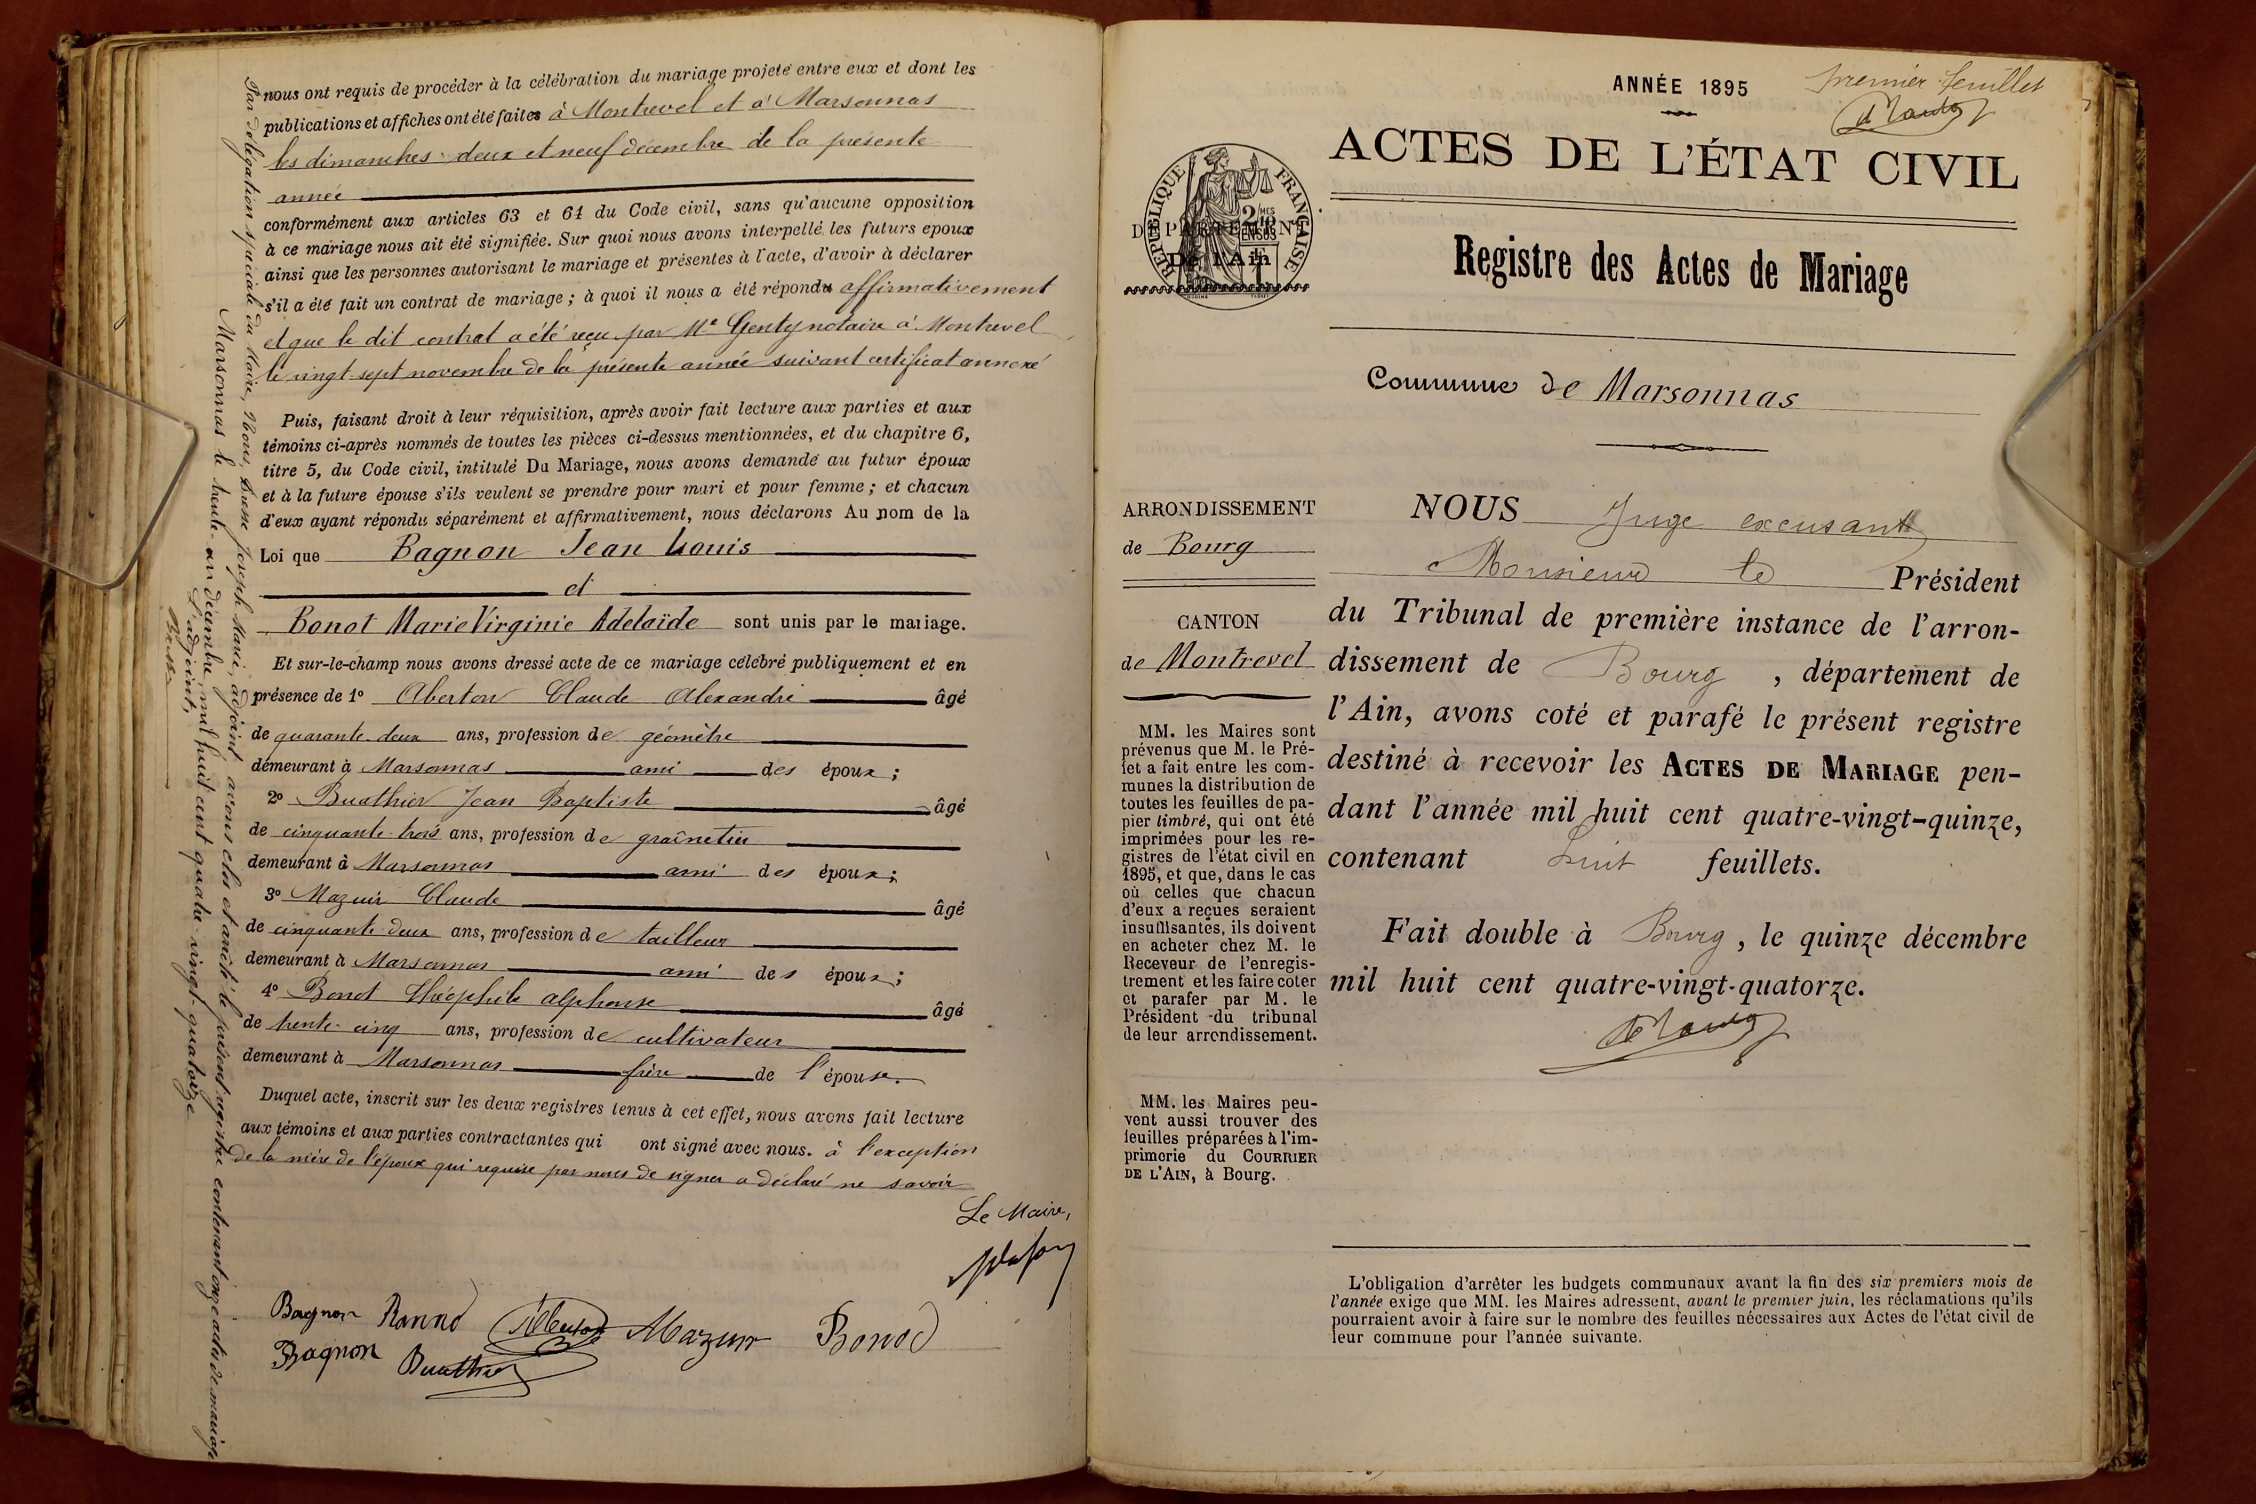 nous ont requis de procéder à la célébration du mariage projeté entre eux et dont les
publications et affiches ont été faites à Montrevel et à Marsonnas
les dimanches deux et neuf décembre de la présente
année
conformément aux articles 63 et 64 du Code civil, sans qu'aucune opposition
à ce mariage nous ait été signifiée. Sur quoi nous avons interpellé les futurs époux
ainsi que les personnes autorisant le mariage et présentes à l'acte, d'avoir à déclarer
s'il a été fait un contrat de mariage ; à quoi il nous a été répondu affirmativement
et que le dit contrat a été reçu par Me Genty notaire à Montrevel
le vingt sept novembre de la présente année suivant certificat annexé
Puis, faisant droit à leur réquisition, après avoir fait lecture aux parties et aux
témoins ci-après nommés de toutes les pièces ci-dessus mentionnées, et du chapitre 6,
titre 5, du Code civil, intitulé Du Mariage, nous avons demandé au futur époux
et à la future épouse s'ils veulent se prendre pour mari et pour femme ; et chacun
d'eux ayant répondu séparément et affirmativement, nous déclarons Au nom de la
Loi que Bagnon Jean Louis
et
Bonot Marie Virginie Adelaïde sont unis par le mariage.
Et sur-le-champ nous avons dressé acte de ce mariage célébré publiquement et en
présence de 1° Aberton Claude Alexandre âgé
de quarante deux ans, profession de géomètre
demeurant à Marsonnas ami des époux ;
2° Buathier Jean Baptiste âgé
de cinquante trois ans, profession de grainetier
demeurant à Marsonnas ami des époux ;
3° Mazuir Claude âgé
de cinquante deux ans, profession de tailleur
demeurant à Marsonnas ami des époux ;
4° Bonot Théophile alphonse âgé
de trente cinq ans, profession de cultivateur
demeurant à Marsonnas frère de l'épouse.
Duquel acte, inscrit sur les deux registres tenus à cet effet, nous avons fait lecture
aux témoins et aux parties contractantes qui ont signé avec nous. à l'exception
de la mère de l'époux qui requise par nous de signer a déclaré ne savoir
Le Maire,
Bagnon Mazuir Bonod
Bagnon Buathier
Par délégation spéciale du Maire, Nous, Joseph Marie, adjoint avons clos et arrêté le présent registre contenant onze actes de mariage
Marsonnas le trente un décembre mil huit cent quatre vingt quatorze
L'adjoint,
ANNÉE 1895
premier feuillet
ACTES DE L'ÉTAT CIVIL
RÉPUBLIQUE FRANÇAISE
2/10 MES
EN SUS
DÉPARTEMENT
De l'Ain
Registre des Actes de Mariage
Commune de Marsonnas
ARRONDISSEMENT
de Bourg
CANTON
de Montrevel
MM. les Maires sont
prévenus que M. le Pré-
fet a fait entre les com-
munes la distribution de
toutes les feuilles de pa-
pier timbré, qui ont été
imprimées pour les re-
gistres de l'état civil en
1895, et que, dans le cas
où celles que chacun
d'eux a reçues seraient
insuffisantes, ils doivent
en acheter chez M. le
Receveur de l'enregis-
trement et les faire coter
et parafer par M. le
Président du tribunal
de leur arrondissement.
MM. les Maires peu-
vent aussi trouver des
feuilles préparées à l'im-
primerie du COURRIER
DE L'AIN, à Bourg.
NOUS Juge excusant
Monsieur le Président
du Tribunal de première instance de l'arron-
dissement de Bourg, département de
l'Ain, avons coté et parafé le présent registre
destiné à recevoir les ACTES DE MARIAGE pen-
dant l'année mil huit cent quatre-vingt-quinze,
contenant huit feuillets.
Fait double à Bourg, le quinze décembre
mil huit cent quatre-vingt-quatorze.
L'obligation d'arrêter les budgets communaux avant la fin des six premiers mois de
l'année exige que MM. les Maires adressent, avant le premier juin, les réclamations qu'ils
pourraient avoir à faire sur le nombre des feuilles nécessaires aux Actes de l'état civil de
leur commune pour l'année suivante.